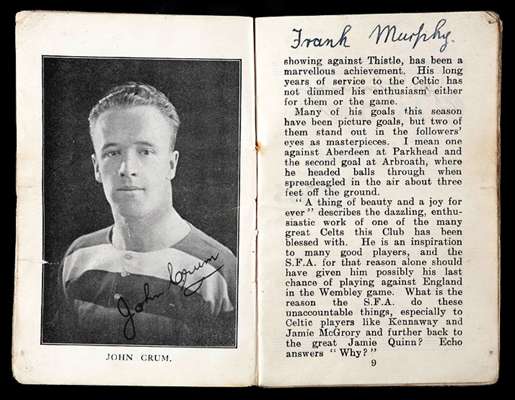 John Crum
JOHN CRUM.
Frank Murphy.
showing against Thistle, has been a
marvellous achievement. His long
years of service to the Celtic has
not dimmed his enthusiasm either
for them or the game.
Many of his goals this season
have been picture goals, but two of
them stand out in the followers'
eyes as masterpieces. I mean one
against Aberdeen at Parkhead and
the second goal at Arbroath, where
he headed balls through when
spreadeagled in the air about three
feet off the ground.
" A thing of beauty and a joy for
ever " describes the dazzling, enthu-
siastic work of one of the many
great Celts this Club has been
blessed with. He is an inspiration
to many good players, and the
S.F.A. for that reason alone should
have given him possibly his last
chance of playing against England
in the Wembley game. What is the
reason the S.F.A. do these
unaccountable things, especially to
Celtic players like Kennaway and
Jamie McGrory and further back to
the great Jamie Quinn? Echo
answers " Why? "
9